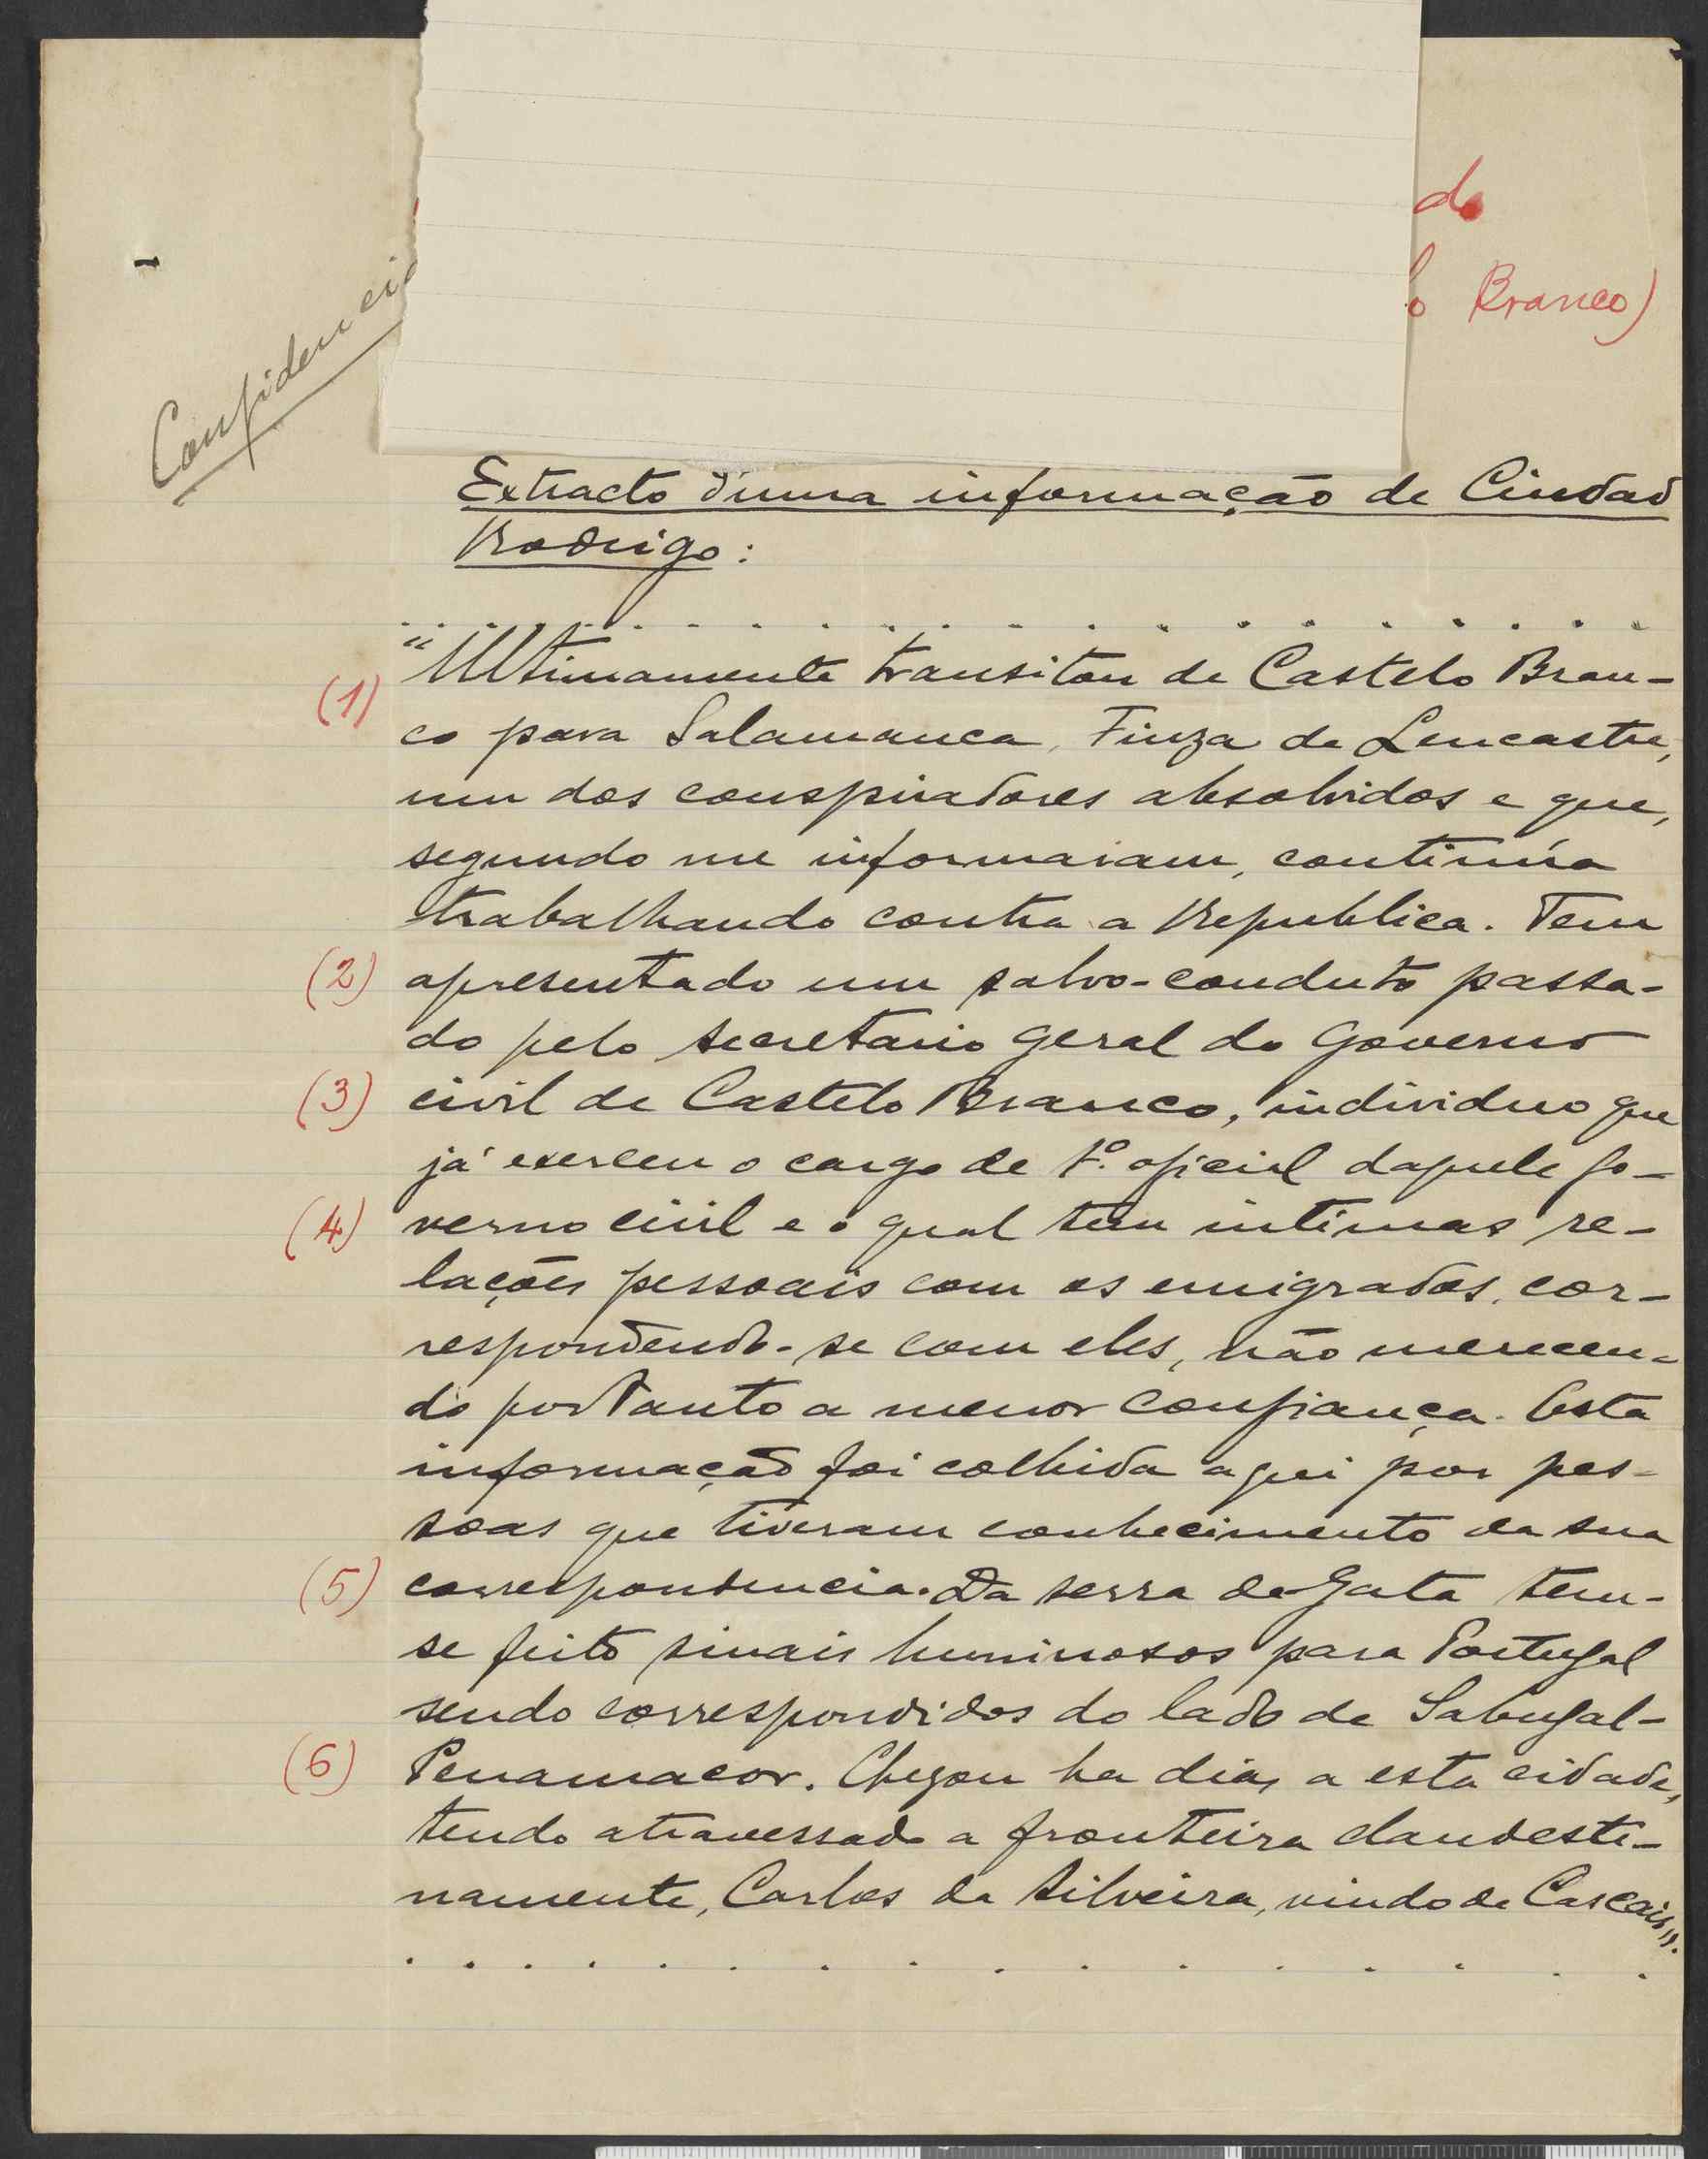 do
Branco)
Confidenci
Extracto d'uma informação de Ciudad
Rodrigo:
. . . . . . . . . . . . . . . . . . . .
(1) "Ultimamente transitou de Castelo Bran-
co para Salamanca, Fiuza de Lencastre,
um dos conspiradores absolvidos e que,
segundo me informaram, continúa
trabalhando contra a Republica. Tem
(2) apresentado um salvo-conduto passa-
do pelo secretario geral do Governo
(3) civil de Castelo Branco, individuo que
já exerceu o cargo de 1º. oficial daquele go-
(4) verno civil e o qual tem intimas re-
lações pessoais com os emigrados, cor-
respondendo-se com eles, não merecen-
do portanto a menor confiança. Esta
informação foi colhida aqui por pes-
soas que tiveram conhecimento da sua
(5) correspondencia. Da serra da Gata tem-
se feito sinais luminosos para Portugal
sendo correspondidos do lado de Sabugal-
(6) Penamacor. Chegou ha dias a esta cidade,
tendo atravessado a fronteira clandesti-
namente, Carlos da Silveira, vindo de Cascais".
. . . . . . . . . . . . . . . .